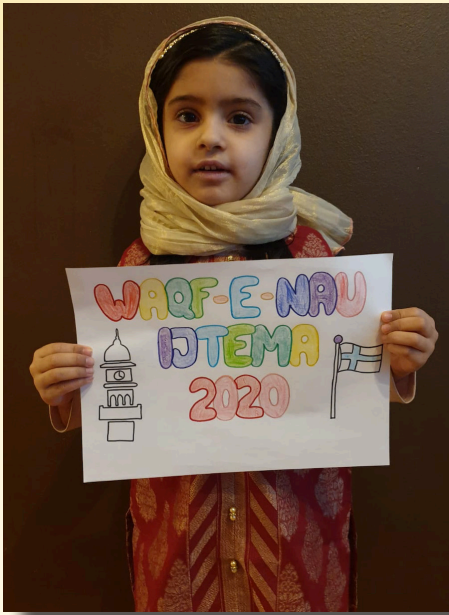 WAQF-E-NAU
IJTEMA
2020